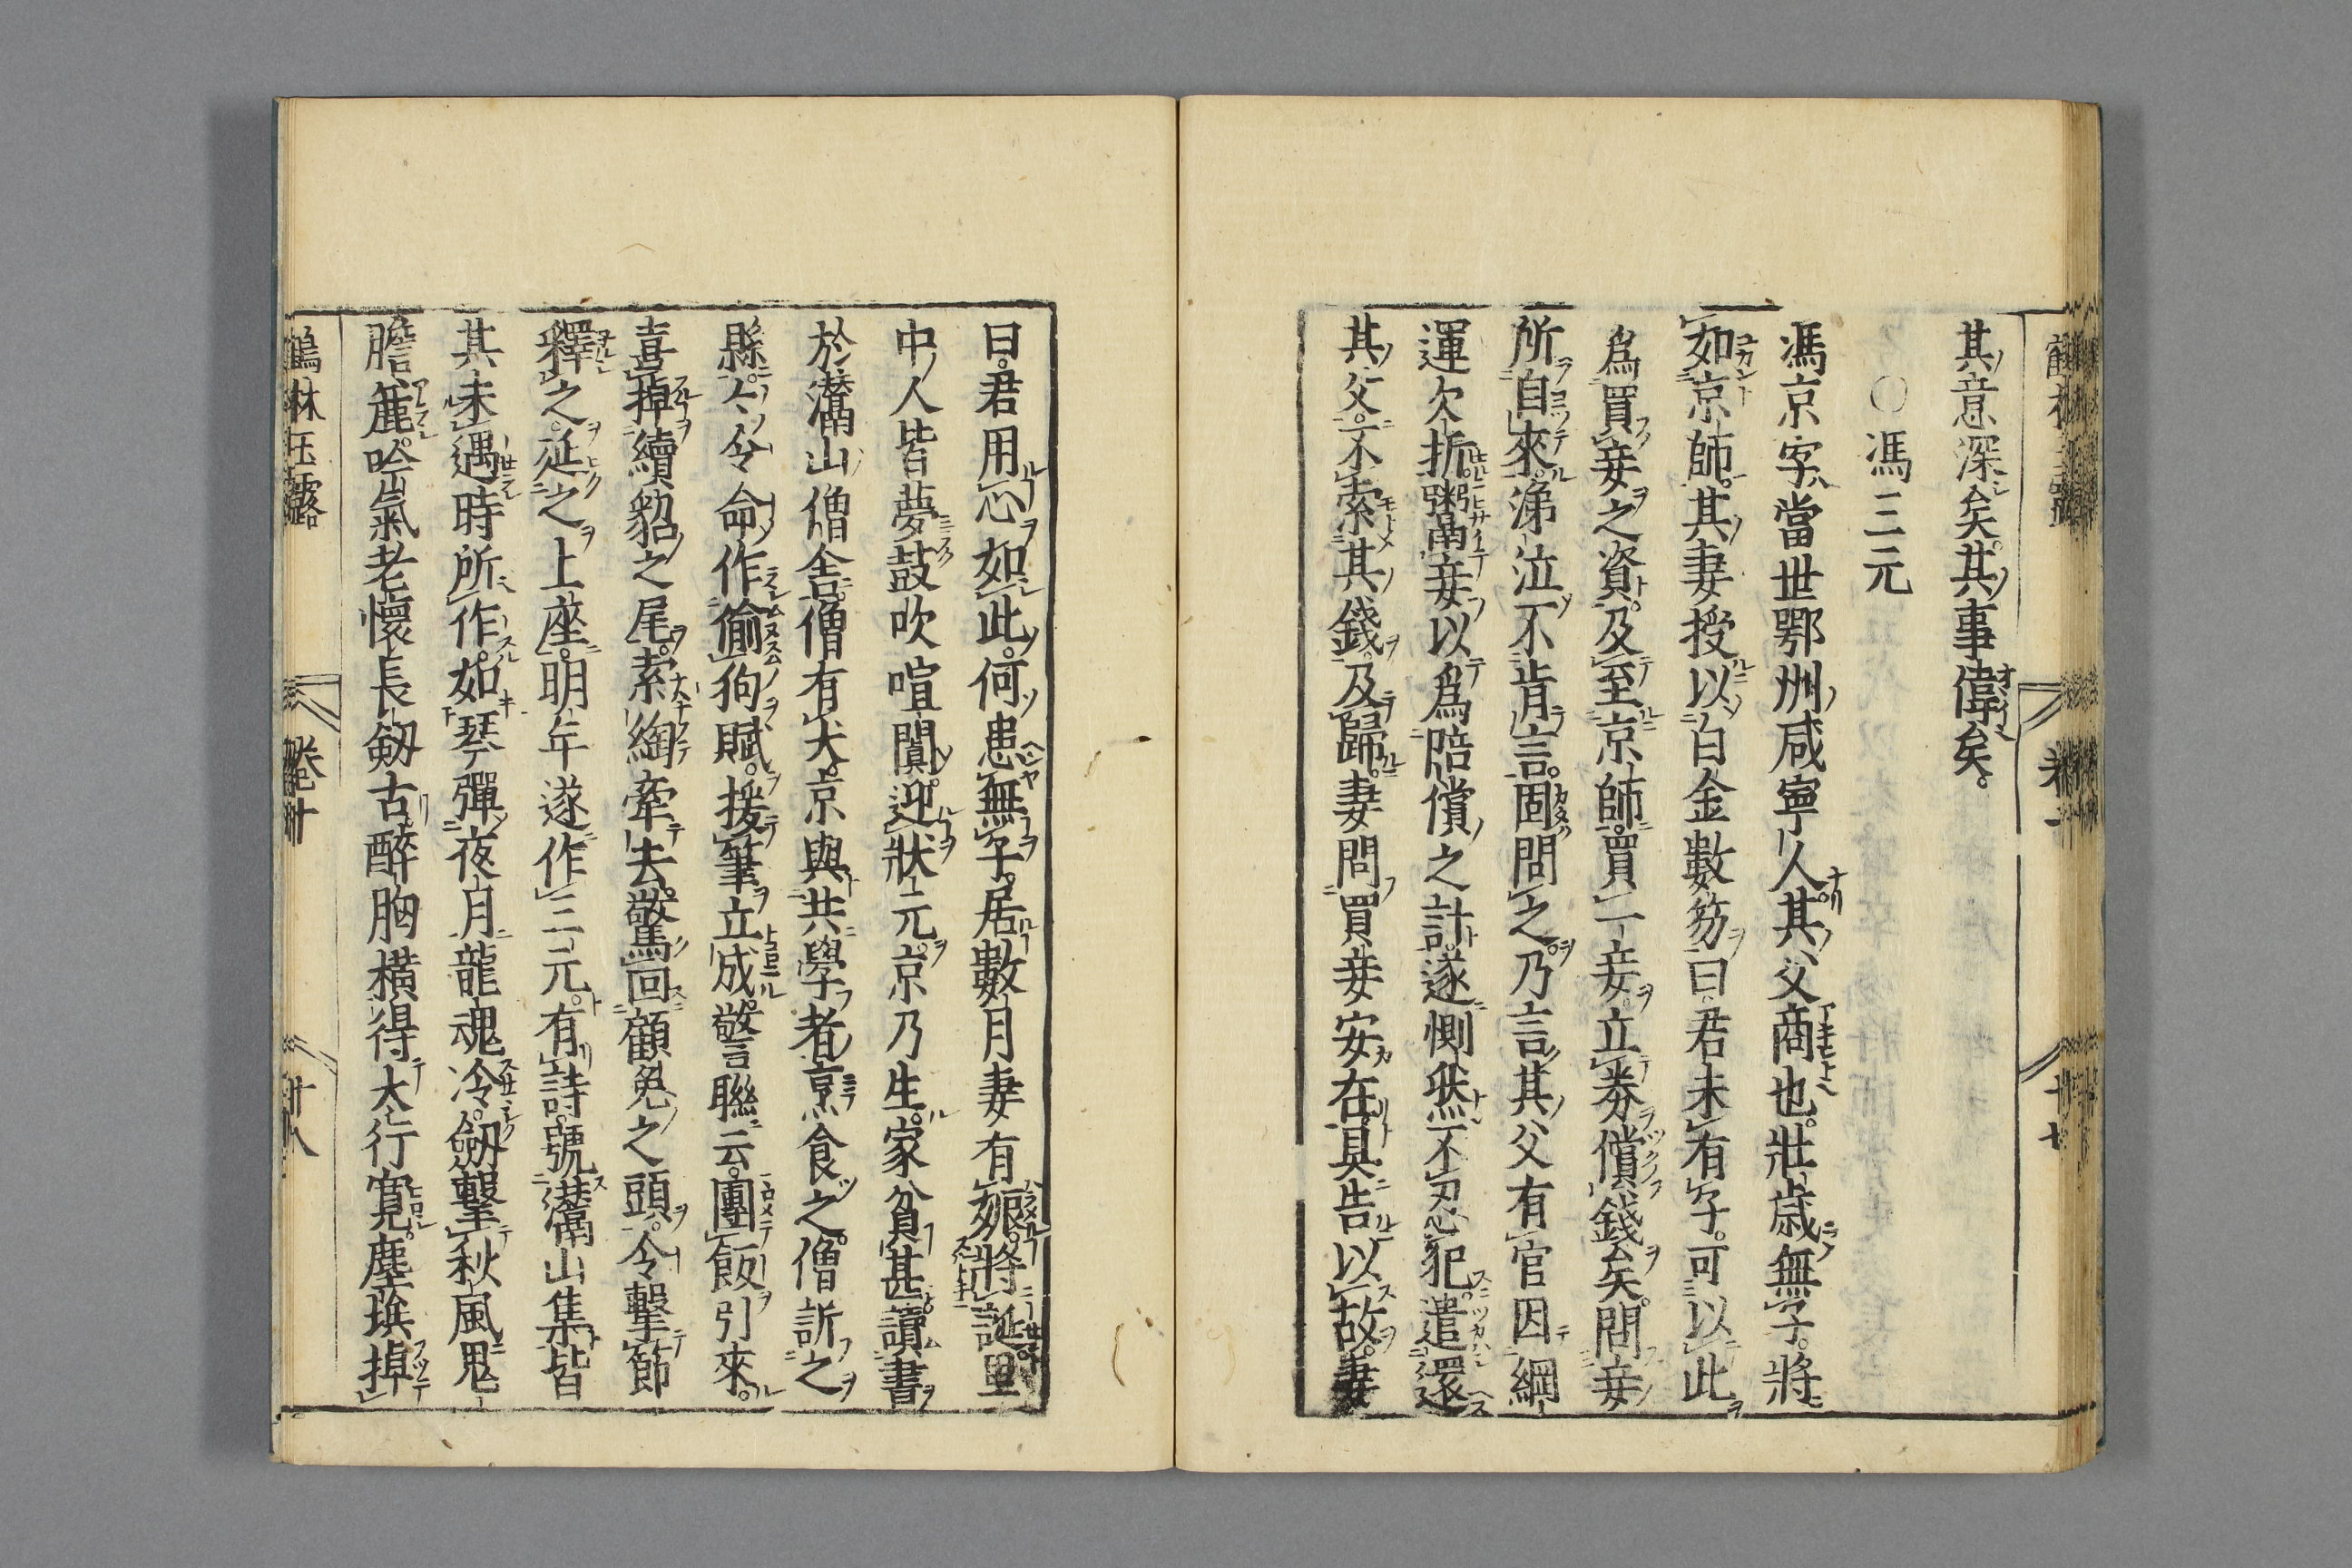 其意深矣其事偉矣
○馮三元
馮京字當世鄂州咸寧人其父商也壯歳無子將
如京師其妻授以白金數笏曰君未有子可以此
爲買妾之資及至京師買一妾立劵償錢矣問妾
所自來涕泣不肯言固問之乃言其父有官因綱
運欠折鬻妾以爲陪償之計遂惻然不忍犯遣還
其父不索其錢及歸妻問買妾安在具告以故妻
曰君用心如此何患無子居數月妻有娠將誕里
中人皆夢鼓吹喧闐迎狀元京乃生家貧甚讀書
於灊山僧舎僧有犬京與共學者烹食之僧訴之
縣々令命作偷狗賦援筆立成警聯云團飯引來
喜掉續貂之尾索綯牽去驚回顧兔之頭令擊節
釋之延之上座明年遂作三元有詩號灊山集皆
其未遇時所作如琴彈夜月龍魂冷劔擊秋風鬼
膽麄吟氣老懷長劔古醉胸横得太行寛塵埃掉
鶴林玉露 卷十 十八